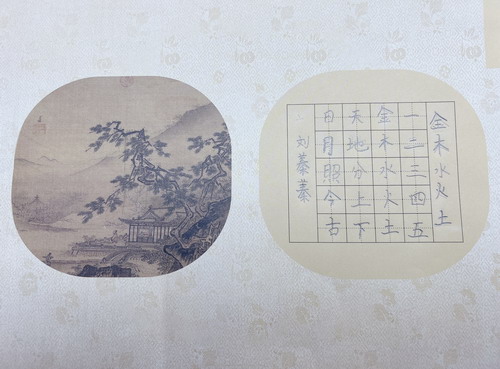 金木水火土
一二三四五
金木水火土
天地分上下
日月照今古
刘蓁蓁